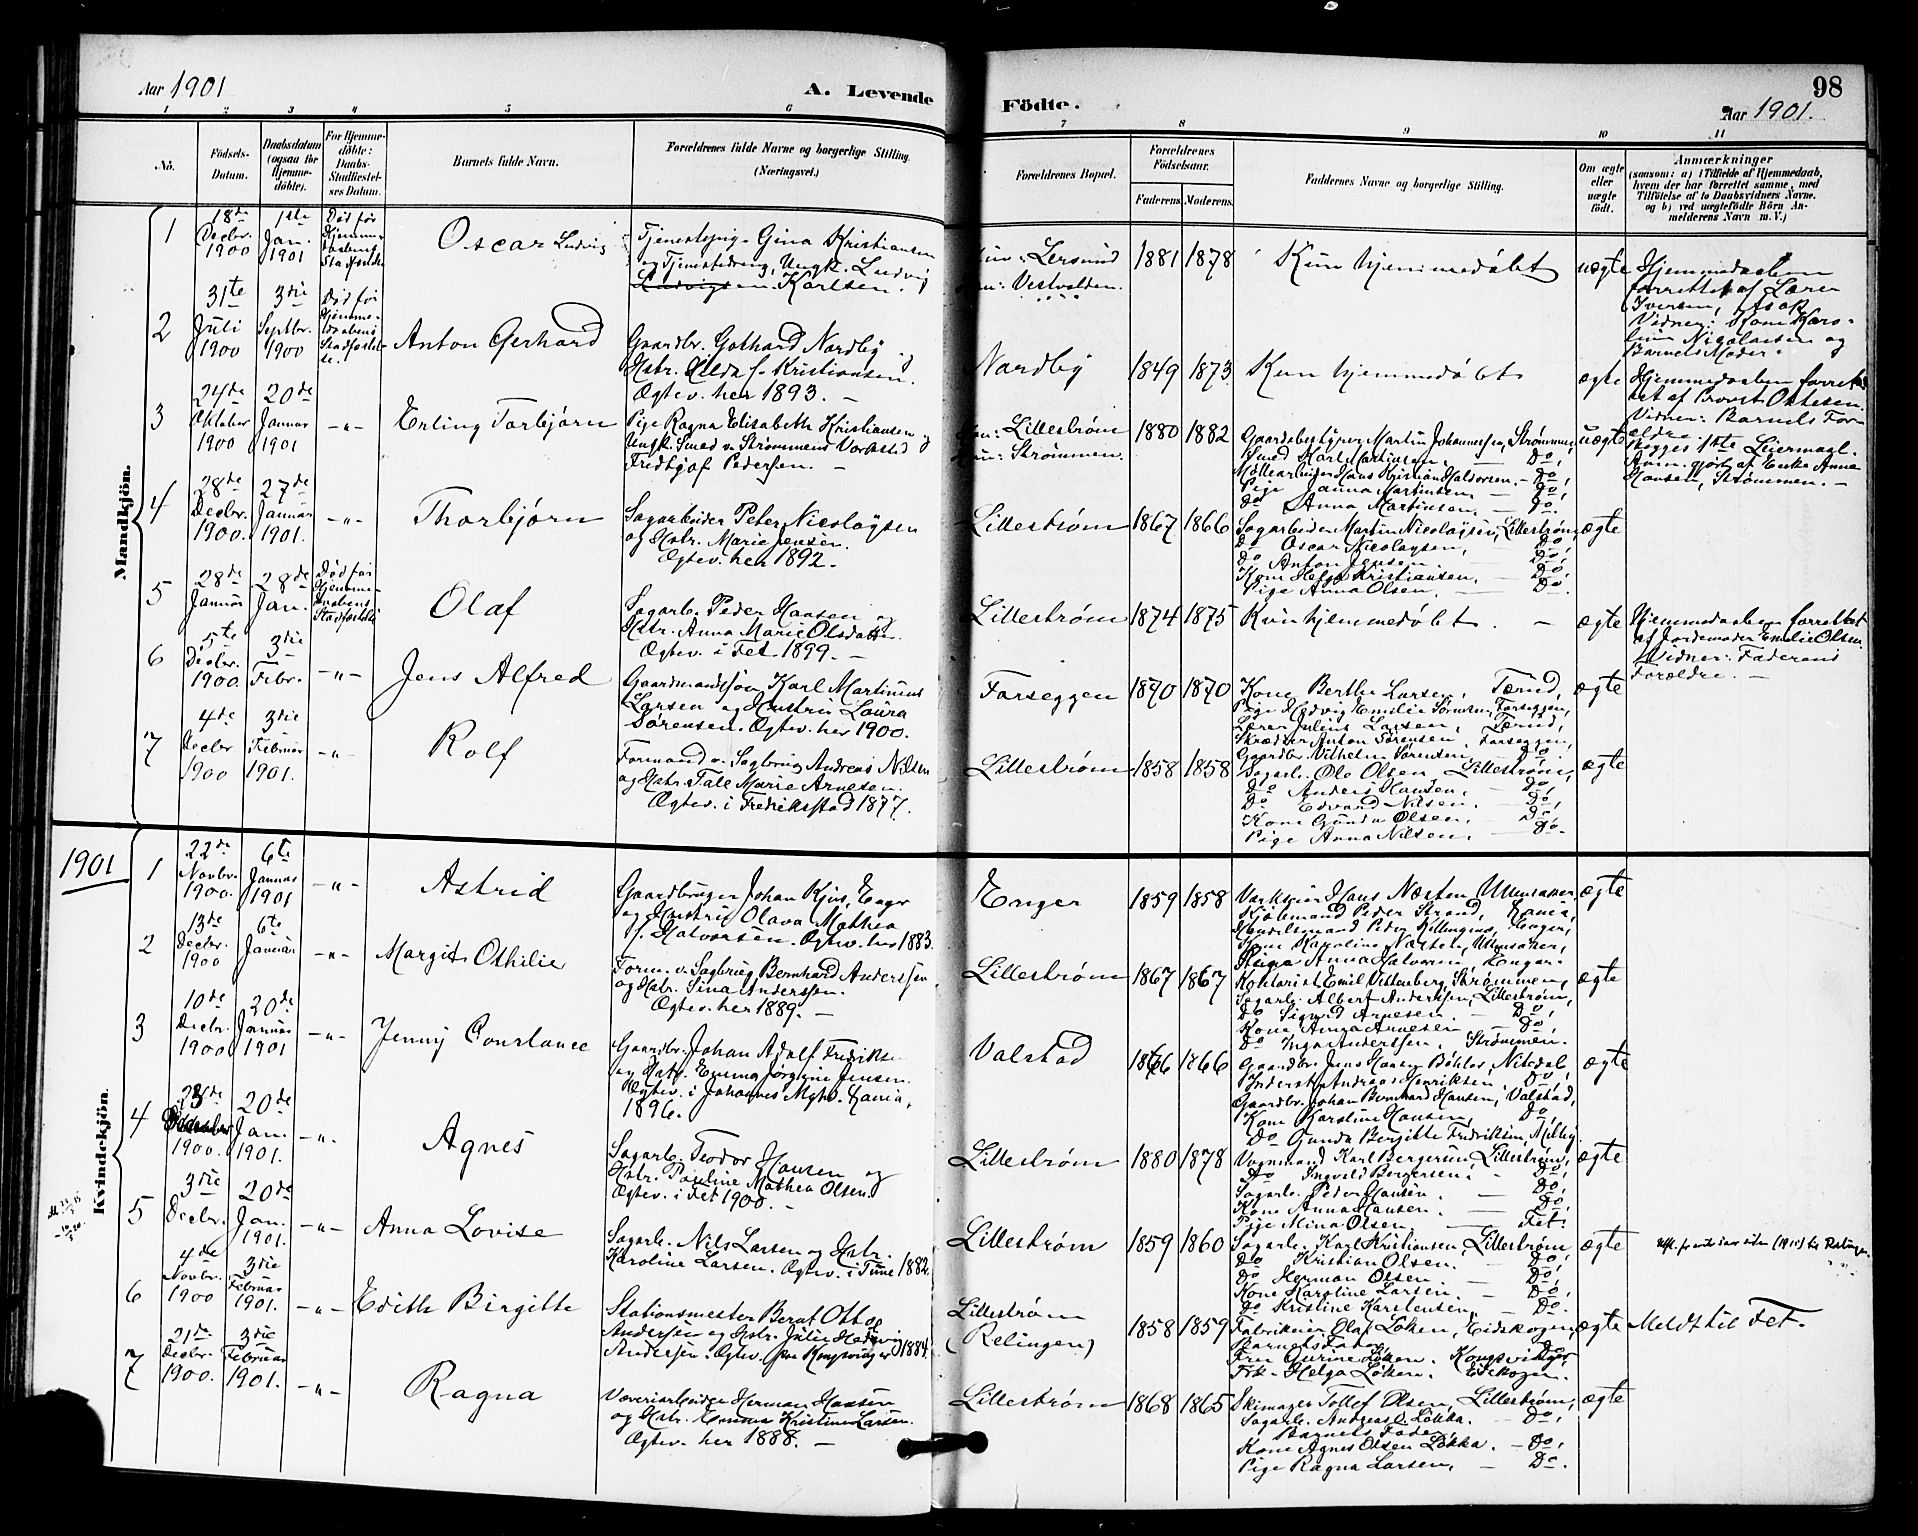 Aar 1901
A. Levende
Födte.
98
Aar 1901.
1 2 3 4 5 6 7 8 9 10 11
No.
Födsels-
Datum.
Daabsdatum
(ogsaa for
Hjemme-
döbte).
For Hjemme-
döbte:
Daabs-
Stadfæstel-
ses Datum.
Barnets fulde Navn.
Forældrenes fulde Navne og borgerlige Stilling.
(Næringsvei.)
Forældrenes Bopæl.
Forældrenes
Födselsaar.
Faderens
Moderens.
Faddernes Navne og borgerlige Stilling.
Om ægte
eller
uægte
födt.
Anmærkninger
(saasom: a) i Tilfælde af Hjemmedaab,
hvem der har forrettet samme, med
Tilföielse af to Daabsvidners Navne,
og b) ved uægtefödte Börn An-
melderens Navn m. V.)
Mandkjön.
1
18de
Decbr.
1900
1ste
Jan.
1901
Död för
Hjemme-
daabens
Oscar Ludvig
Tjenestepige Gina Kristiansen
og Tjenestedreng, Ungk. Ludvig
Karlsen.
Lersund
Vestvolden.
1881 1878
Kun hjemmedøbt
uægte
Hjemmedaaben
forrettet af Lærer
Iversen,
Vidner: Kone Karo-
line Nicolaisen og
Barnets Moder.
2
31te
Juli
1900
3die
Septbr.
1900
Död för
Hjemme-
daabens
Stadfæstel-
se.
Anton Gerhard
Gaardbr. Gothard Nordby og
Hstr. Hilda f. Kristiansen.
Ægtev. her 1893. —
Nordby
1849 1873
Kun hjemmedøbt
ægte
Hjemmedaaben forret-
tet af Provst Ottesen.
Vidner: Barnets For-
ældre.
3
24de
Oktober
1900
20de
Januar
1901
-"-
Erling Torbjørn
Pige Ragna Elisabeth Kristiansen og
Ungk. Smed v. Strømmens Værksted
Fredtjof Pedersen. —
Lillestrøm
Strømmen.
1880 1882
Gaardsbestyrer Martin Johannessen, Strømmen,
Smed Karl Martinsen. — Do,
Møllearbeider Hans Kristian Halvorsen. - Do,
Pige Janna Martinsen — Do,
Do Anna Martinsen. — Do.
uægte
Begges 1ste Leiermaal.
Anm. gjort af Enke Anna
Hansen, Strømmen. —
4
28de
Decbr.
1900.
27de
Januar
1901.
-"-
Thorbjørn
Sagarbeider Peter Nicolaysen
og Hstr. Marie Jensen.
Ægtev. her 1892.
Lillestrøm
1867 1866
Sagarbeider Martin Nicolaysen, Lillestrøm,
Do Oscar Nicolaysen, Do,
Do Anton Jensen Do,
Kone Helga Kristiansen, — Do,
Pige Anna Olsen, — Do.
ægte
5
28de
Januar
28de
Jan.
Död för
Hjemme-
daabens
Olaf
Sagarb. Peder Hansen og
Hstr. Anna Marie Olsdatter.
Ægtev. i Fet 1899. —
Lillestrøm
1874 1875
Kun hjemmedøbt. —
ægte
Hjemmedaaben forrettet
af Jordemoder Emilie Olsen.
Vidner: Faderens
Forældre. —
6
5te
Decbr.
1900.
3die
Febr.
-"-
Jens Alfred
Gaardmandssøn Karl Martinius
Larsen og Hustru Laura
Sørensen. Ægtev. her 1900.
Farseggen
1870 1870
Kone Berthe Larsen, Tærud,
Pige Hedvig Emilie Sørensen, Farseggen,
Lærer Julius Larsen, Tærud,
Skrædder Anton Sørensen, Farseggen,
Gaardbr. Vilhelm Sørensen Do.
ægte
7
4de
Decbr
1900
3die
Februar
1901.
-"-
Rolf
Formand v. Sagbrug Andreas Nilsen
og Hstr. Tale Marie Arnesen.
Ægtev. i Fredriksstad 1877.
Lillestrøm
1858 1858
Sagarb. Ole Olsen, Lillestrøm,
Do Anders Hansen, — Do,
Do Edvard Nilsen. — Do,
Kone Gunda Olsen, — Do,
Pige Anna Nilsen, — Do.
ægte
1901
Kvindekjön.
1
22de
Novbr.
1900.
6te
Januar
1901
-"-
Astrid
Gaardbruger Johan Kjus, Enger
og Hustru Olava Mathea
f. Halvorsen. Ægtev. her 1883.
Enger
1859 1858
Værkseier Hans Næsten, Ullensaker
Kjøbmand Peder Strand, Rania,
Handelsmand Peder Killingmo, Enger,
Kone Karoline Næsten, Ullensaker,
Pige Anna Halvorsen Enger.
ægte
2
13de
Decbr.
1900
6te
Januar
-"-
Margit Othilie
Form. v. Sagbrug Bernhard Anderssen
og Hstr. Sina Anderssen.
Ægtev. her 1889. —
Lillestrøm
1867 1867
Kontorist Emil Vittenberg, Strømmen,
Sagarb. Albert Anderssen, Lillestrøm,
Do Sigurd Arnesen. — Do,
Kone Anna Arnesen — Do,
Do Inga Anderssen, Strømmen.
ægte
3
10de
Decbr.
1900
20de
Januar
1901
-"-
Jenny Constance
Gaardbr. Johan Adolf Fredriksen
og Hstr. Emma Jørgine Jensen.
Ægtev. i Johannes Mgh. Rania,
1896.
Valstad
1866 1866
Gaardbr. Jens Hansen Bøhler, Nitedal,
Inderst Andreas Henriksen. Do,
Gaardbr. Johan Bernhard Hansen, Valstad,
Kone Karoline Hansen, Do,
Do Gunda Bergitte Fredriksen, Melby.
ægte
4
1900.
20de
Jan.
1901.
-"-
Agnes
Sagarb. Teodor Hansen og
Hstr. Pauline Mathea Olsen.
Ægtev. i Fet 1900. —
Lillestrøm
1880 1878
Vognmand Karl Bergersen, Lillestrøm,
Do Ingvald Bergersen. Do,
Sagarb. Peder Hansen. — Do,
Kone Anna Hansen. — Do,
Pige Mina Olsen. — Fet.
ægte
5
3die
Decbr.
20de
Jan.
1901.
-"-
Anna Lovise
Sagarb. Nils Larsen og Hstr.
Karoline Larsen. Ægtev. i Tune 1882.
Lillestrøm
1859 1860
Sagarb. Karl Kristiansen, Lillestrøm,
Do Kristian Olsen. Do,
Do Herman Olsen. — Do,
Kone Karoline Larsen. — Do,
Do Kristine Karstensen, — Do.
ægte
6
4de
Novbr.
1900
3die
Februar
1901.
-"-
Edith Birgitte
Stationsmester Bernt Otto
Andersen og Hstr. Julie Hedevig
Andersen. Ægtev. for Kongsvinger 1884.
Lillestrøm
(Relingen)
1858 1859
Fabrikeier Olaf Løken, Eidskogen,
Barnets Fader, Do,
Fru Gurine Løken. Kongsvinger,
Frk. Helga Løken. Eidskogen.
ægte
Meldt til Fet.
7
21de
Decbr.
1900.
3die
Februar
1901.
-"-
Ragna
Væveriarbeider Herman Hansen
og Hstr. Emma Kristine Larsen.
Ægtev. her 1888. —
Lillestrøm
1868 1865
Skimager Tollef Olsen, Lillestrøm,
Sagarb. Andreas Løkka. — Do,
Barnets Fader
Kone Agnes Olsen Løkka. — Do,
Pige Ragna Larsen, — Do.
ægte